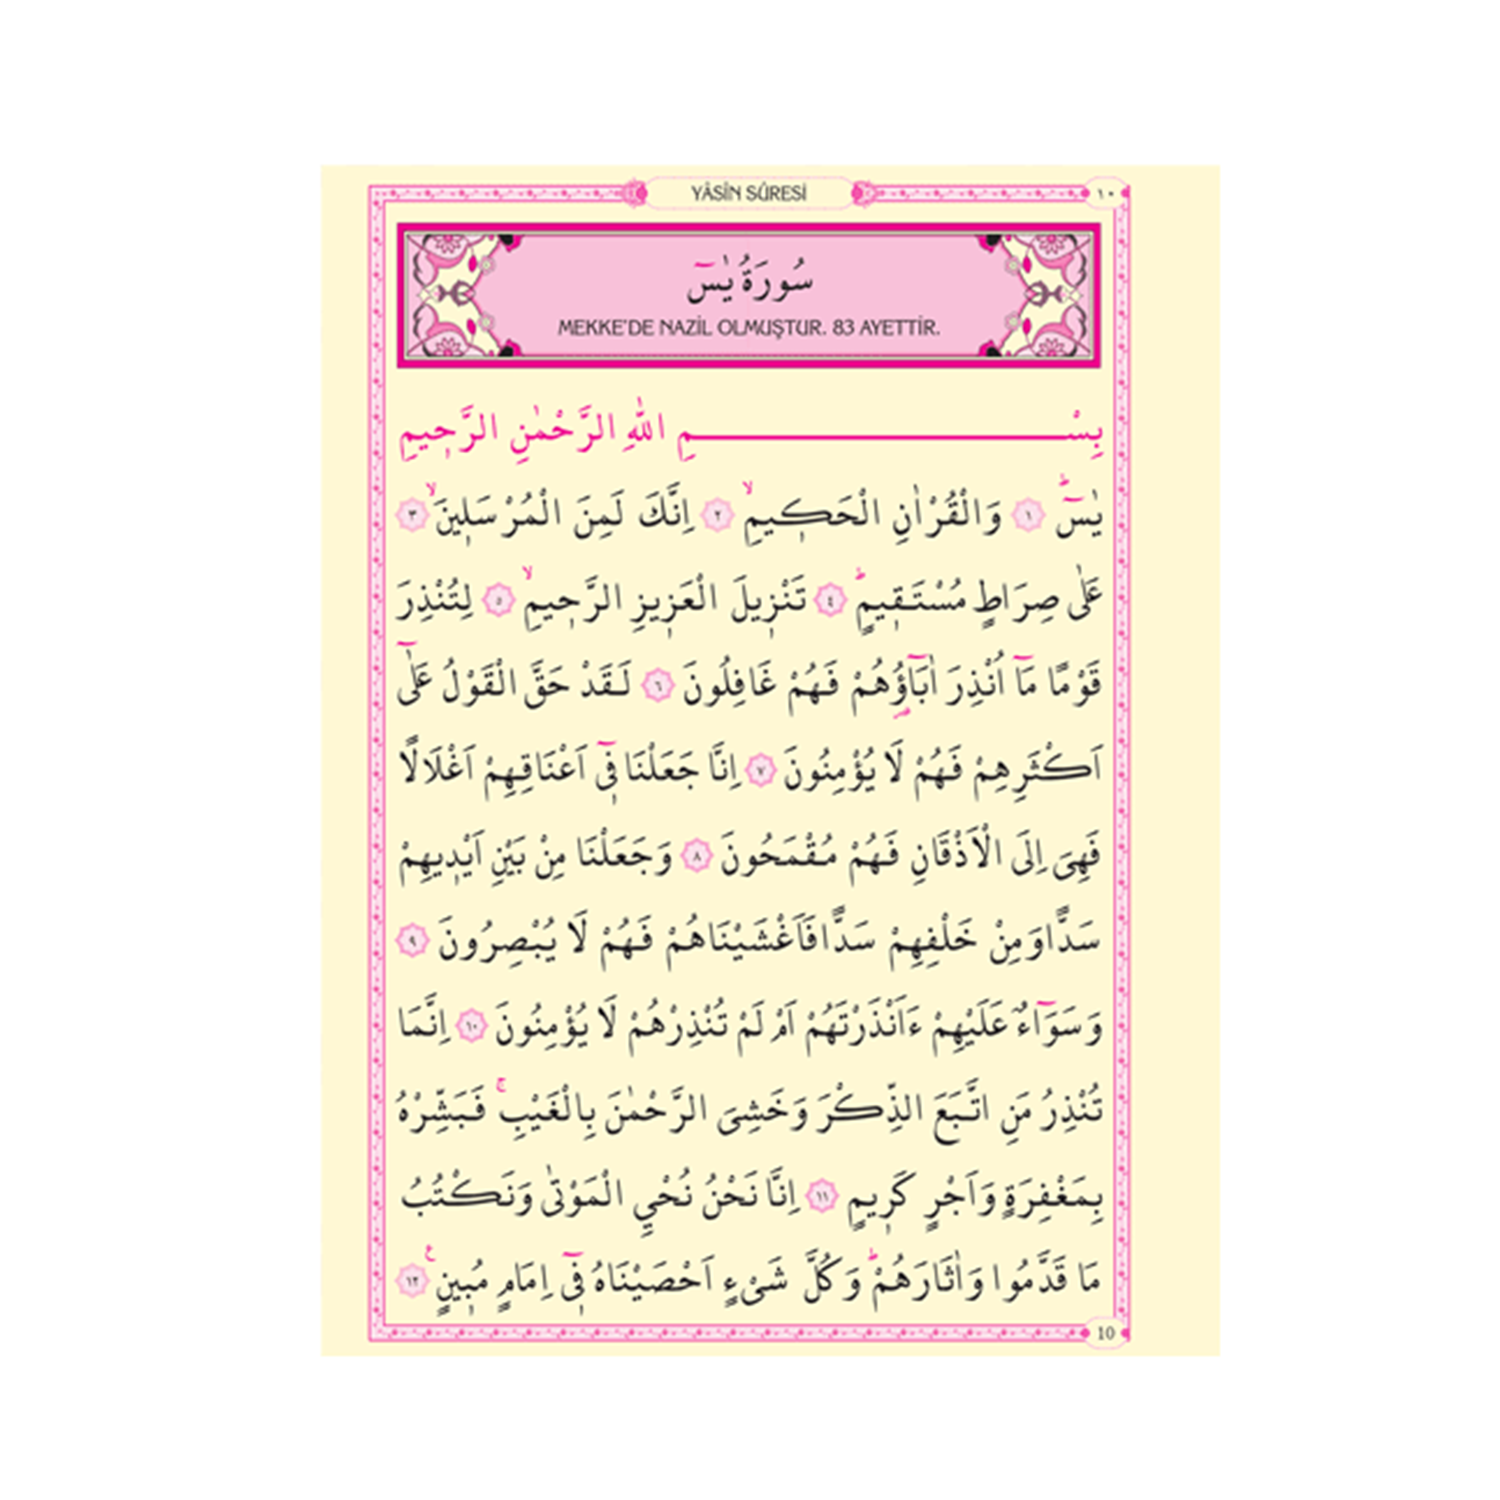 YÂSÎN SÛRESİ
١٠
سُورَةُ يٰسٓ
MEKKE'DE NAZİL OLMUŞTUR. 83 AYETTİR.
بِسْمِ اللّٰهِ الرَّحْمٰنِ الرَّح۪يمِ
يٰسٓۜ ﴿١﴾ وَالْقُرْاٰنِ الْحَك۪يمِۙ ﴿٢﴾ اِنَّكَ لَمِنَ الْمُرْسَل۪ينَۙ ﴿٣﴾
عَلٰى صِرَاطٍ مُسْتَق۪يمٍۜ ﴿٤﴾ تَنْز۪يلَ الْعَز۪يزِ الرَّح۪يمِۙ ﴿٥﴾ لِتُنْذِرَ
قَوْمًا مَٓا اُنْذِرَ اٰبَٓاؤُ۬هُمْ فَهُمْ غَافِلُونَ ﴿٦﴾ لَقَدْ حَقَّ الْقَوْلُ عَلٰٓى
اَكْثَرِهِمْ فَهُمْ لَا يُؤْمِنُونَ ﴿٧﴾ اِنَّا جَعَلْنَا ف۪ٓي اَعْنَاقِهِمْ اَغْلَالًا
فَهِيَ اِلَى الْاَذْقَانِ فَهُمْ مُقْمَحُونَ ﴿٨﴾ وَجَعَلْنَا مِنْ بَيْنِ اَيْد۪يهِمْ
سَدًّا وَمِنْ خَلْفِهِمْ سَدًّا فَاَغْشَيْنَاهُمْ فَهُمْ لَا يُبْصِرُونَ ﴿٩﴾
وَسَوَٓاءٌ عَلَيْهِمْ ءَاَنْذَرْتَهُمْ اَمْ لَمْ تُنْذِرْهُمْ لَا يُؤْمِنُونَ ﴿١٠﴾ اِنَّمَا
تُنْذِرُ مَنِ اتَّبَعَ الذِّكْرَ وَخَشِيَ الرَّحْمٰنَ بِالْغَيْبِۚ فَبَشِّرْهُ
بِمَغْفِرَةٍ وَاَجْرٍ كَر۪يمٍ ﴿١١﴾ اِنَّا نَحْنُ نُحْيِ الْمَوْتٰى وَنَكْتُبُ
مَا قَدَّمُوا وَاٰثَارَهُمْۜ وَكُلَّ شَيْءٍ اَحْصَيْنَاهُ ف۪ٓي اِمَامٍ مُب۪ينٍ۟ ﴿١٢﴾
10